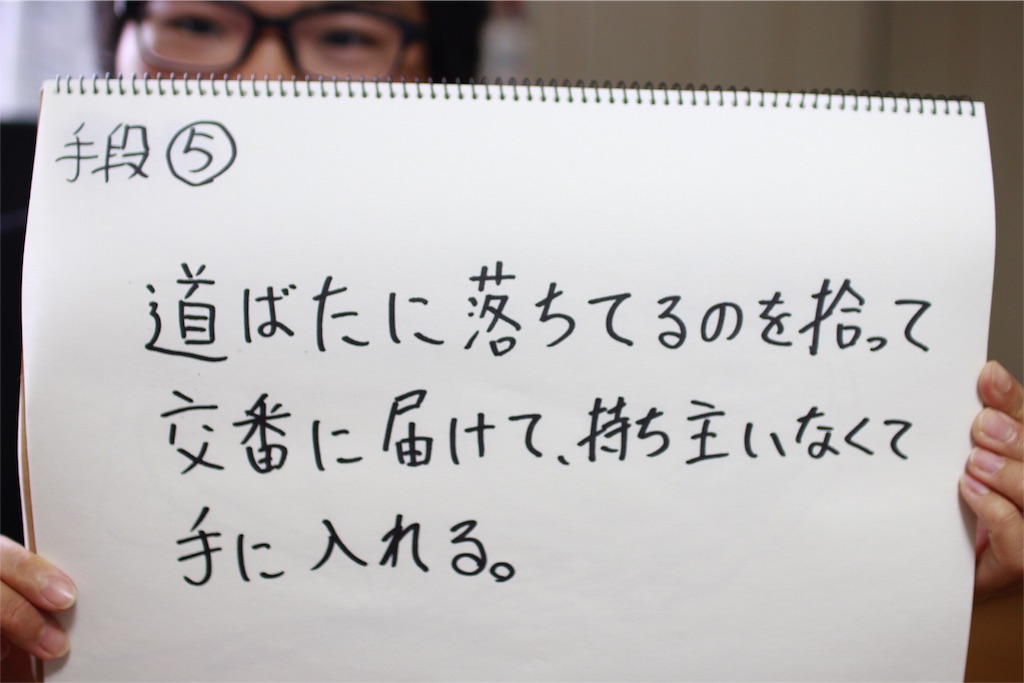 手段⑤
道ばたに落ちてるのを拾って
交番に届けて、持ち主いなくて
手に入れる。